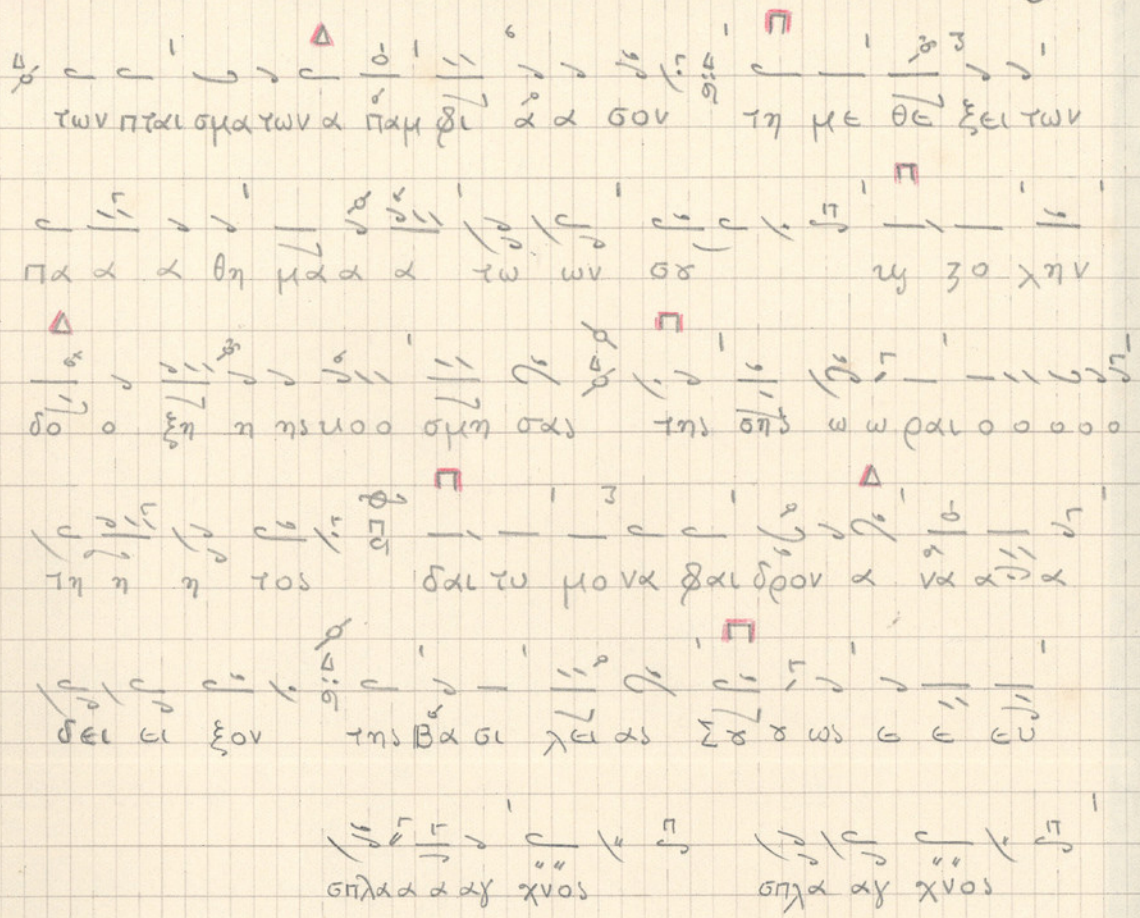 των πται σμα των α παμ φι α α σον τη με θε ξει των
πα α α θη μα α α τω ων σȣ ψ ζο λην
δο ο ξη η ης κο ο σμη σας της σης ω ω ραι ο ο ο ο ο
τη η η τος δαι τυ μο να φαι δρον α να α α
δει ει ξον της Βα σι λει ας Σȣ ȣ ως ε ε ευ
σπλα α α αγ χνος σπλα αγ χνος